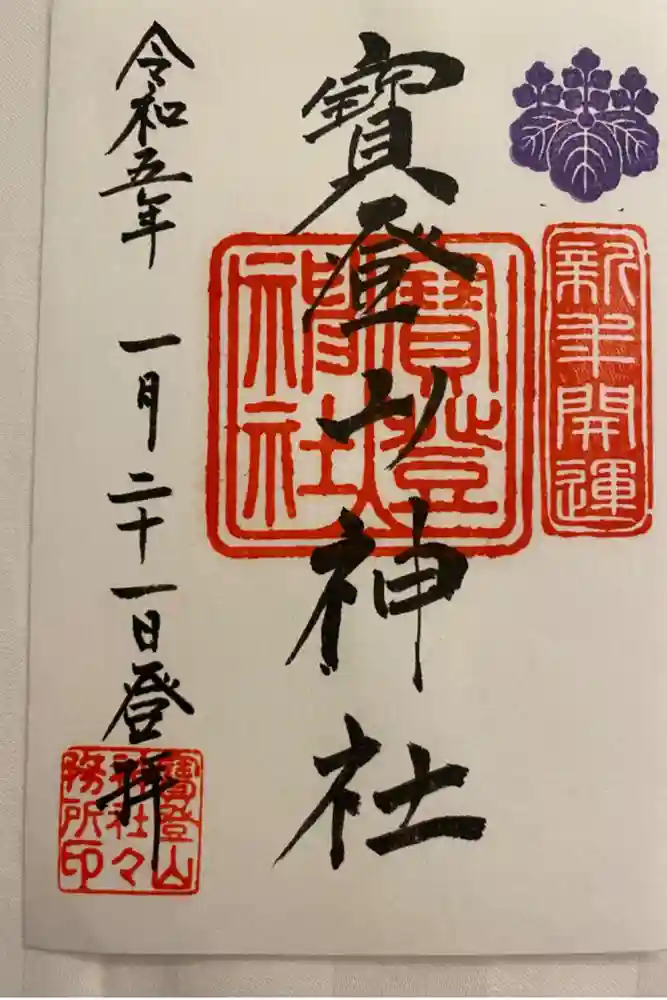 新年開運
寶登山神社
寶登山神社
令和五年 一月二十一日登拝
寶登山
神社々
務所印